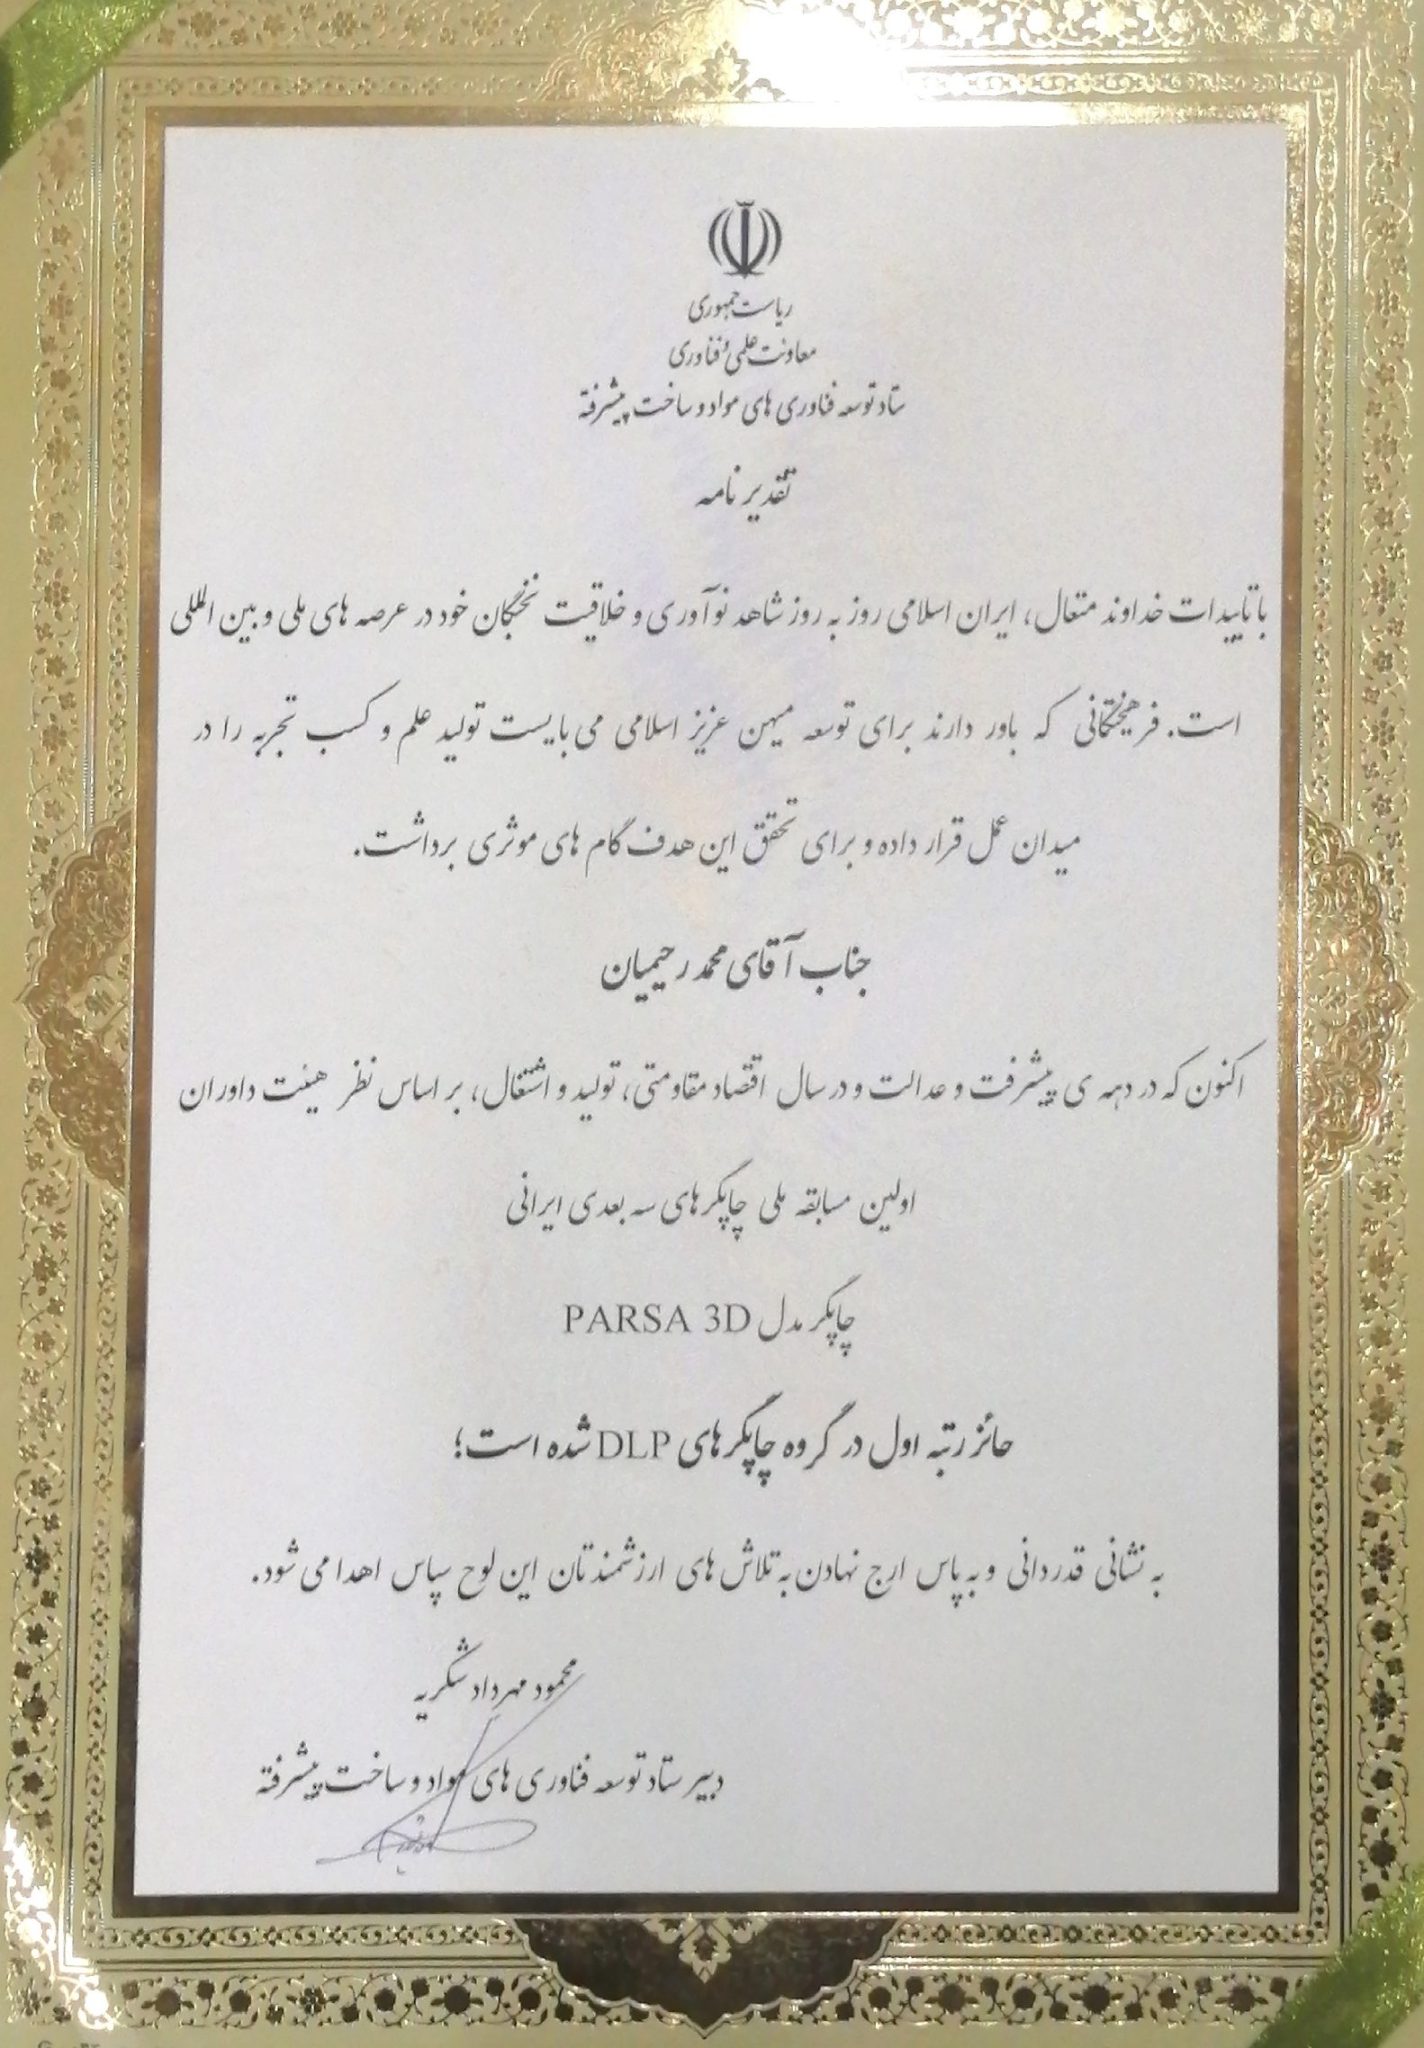 ریاست جمهوری
معاونت علمی و فناوری
ستاد توسعه فناوری های مواد و ساخت پیشرفته
تقدیر نامه
با تاییدات خداوند متعال، ایران اسلامی روز به روز شاهد نوآوری و خلاقیت نخبگان خود در عرصه های ملی و بین المللی
است. فرهیختگانی که باور دارند برای توسعه میهن عزیز اسلامی می بایست تولید علم و کسب تجربه را در
میدان عمل قرار داده و برای تحقق این هدف گام های موثری برداشت.
جناب آقای محمد رحیمیان
اکنون که در دهه ی پیشرفت و عدالت و در سال اقتصاد مقاومتی، تولید و اشتغال، بر اساس نظر هیئت داوران
اولین مسابقه ملی چاپگرهای سه بعدی ایرانی
چاپگر مدل PARSA 3D
حائز رتبه اول در گروه چاپگرهای DLP شده است؛
به نشانی قدردانی و به پاس ارج نهادن به تلاش های ارزشمندتان این لوح سپاس اهدا می شود.
محمود مهرداد شکریه
دبیر ستاد توسعه فناوری های مواد و ساخت پیشرفته